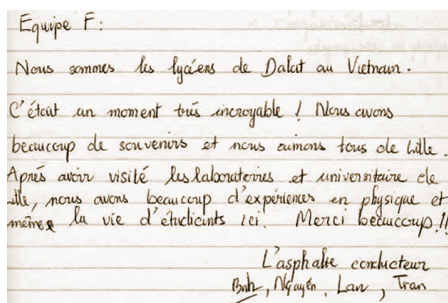 Equipe F:
Nous sommes les lycéens de Dalat au Vietnam.
C'était un moment très incroyable ! Nous avons
beaucoup de souvenirs et nous aimons tous de Lille.
Après avoir visité les laboratoires et universitaire de
ille, nous avons beaucoup d'expériences en physique et
même la vie d'étudiants ici. Merci beaucoup !!
L'asphalte conducteur
Bnh, Nguyen, Lan, Tran